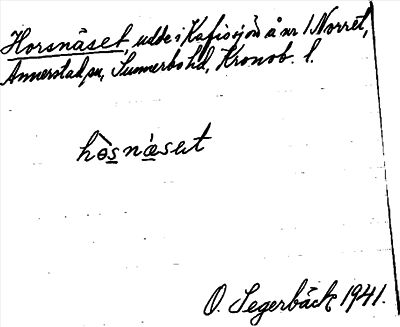 Horsnäset, udde i Kafjosjön å nr 1 Norret,
Annerstad sn, Sunnerbo hd, Kronob. l.
hòsnǽsət
O. Segerbäck 1941.